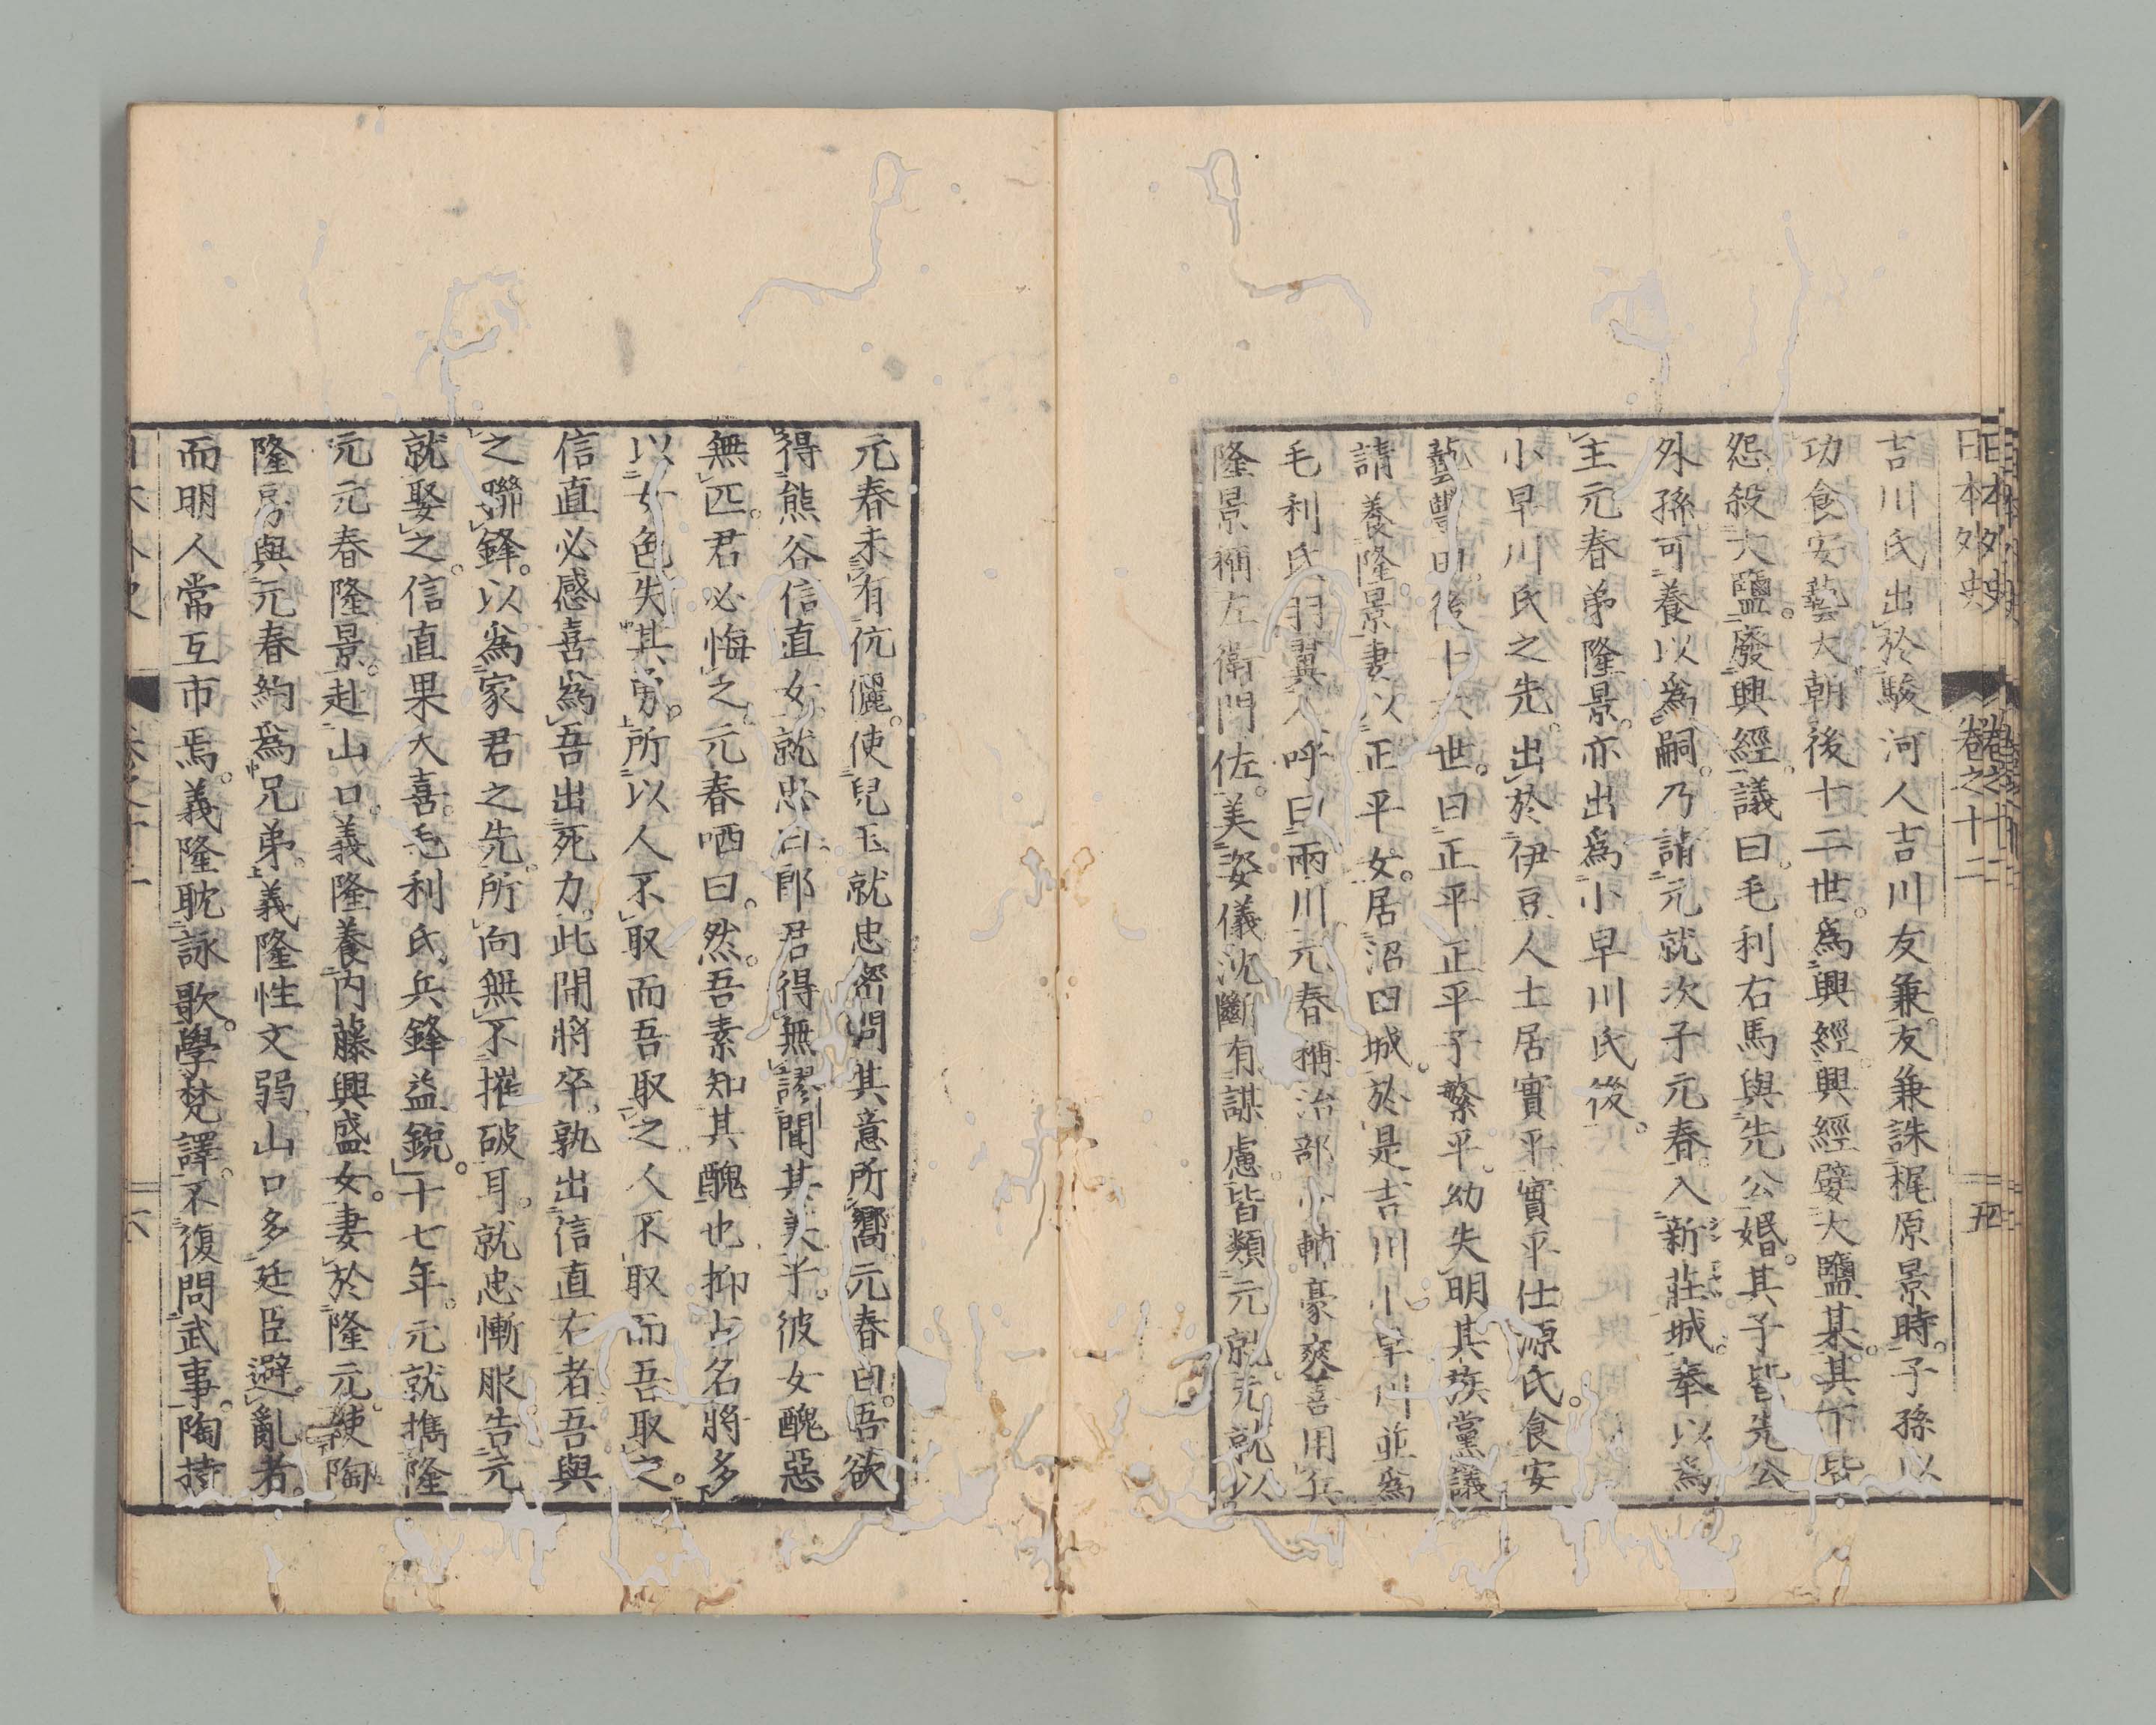 日本外史
卷之十二
五
吉川氏出於駿河人吉川友兼。友兼誅梶原景時。子孫以
功食安藝大朝後十二世。爲興經。興經嬖大鹽某。其下皆
怨。殺大鹽。廢興經。議曰。毛利右馬與先公婚。其子皆先公
外孫可養以爲嗣。乃請元就次子元春。入新莊城。奉以爲
主元春弟隆景。亦出爲小早川氏後。
小早川氏之先。出於伊豆人土居實平實平仕源氏。食安
藝豐田。後十六世。曰正平正平子繁平。幼失明其族黨議
請養隆景妻以正平女。居沼田城。於是吉川小早川並爲
毛利氏羽翼人呼曰兩川元春稱治部少輔豪爽善用兵
隆景稱左衛門佐。美姿儀沈斷有謀慮皆類元就。元就以
元春未有伉儷。使兒玉就忠密問其意所嚮元春曰。吾欲
得熊谷信直女。就忠曰郎君得無謬聞其美乎。彼女醜惡
無匹。君必悔之元春哂曰。然。吾素知其醜也抑古名將多
以女色失其勇。所以人不取而吾取之人不取而吾取之。
信直必感喜爲吾出死力。此間將卒。孰出信直右者吾與
之聯鋒。以爲家君之先。所向無不摧破耳。就忠慚服告元
就娶之。信直果大喜。毛利氏兵鋒益銳。十七年。元就攜隆
元元春隆景。赴山口。義隆養內藤興盛女。妻於隆元。使陶
隆房與元春約爲兄弟。義隆性文弱。山口多廷臣避亂者。
而明人常互市焉。義隆耽詠歌。學梵譯。不復問武事。陶持
六